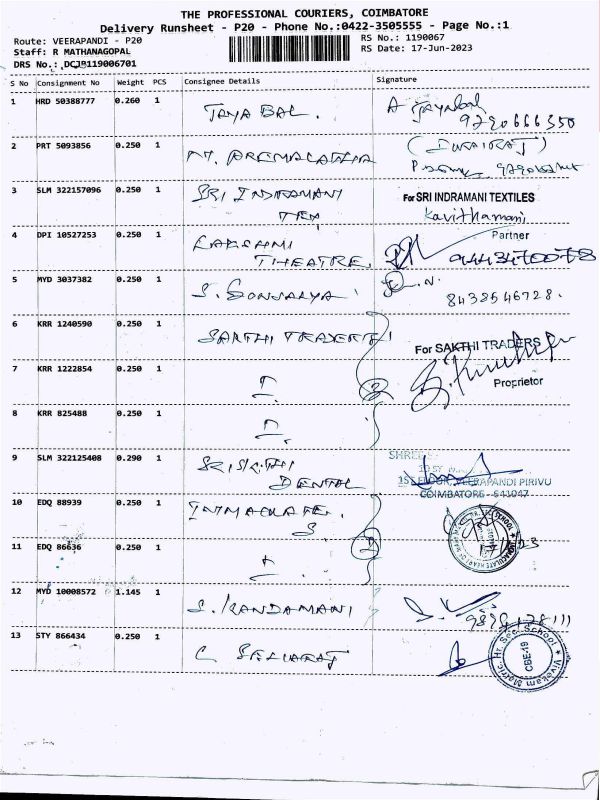 THE PROFESSIONAL COURIERS, COIMBATORE
Delivery Runsheet - P20 - Phone No.:0422-3505555 - Page No.:1
Route: VEERAPANDI - P20
RS No.: 1190067
Staff: R MATHANAGOPAL
RS Date: 17-Jun-2023
DRS No.: DCJB119006701
S No Consignment No Weight PCS Consignee Details Signature
1 HRD 50388777 0.260 1 JAYA BAL. A Jayabal
9790666350
2 PRT 5093856 0.250 1 M. PREMALATHA (DURAIRAJ)
3 SLM 322157096 0.250 1 SRI INDRAMANI For SRI INDRAMANI TEXTILES
TEX Kavithamani
Partner
4 DPI 10527253 0.250 1 LAKSHMI
THEATRE. 9443470078
5 MYD 3037382 0.250 1 S. N.
8438546728.
6 KRR 1240590 0.250 1 SAKTHI TRADERS For SAKTHI TRADERS
7 KRR 1222854 0.250 1 2
Proprietor
8 KRR 825488 0.250 1
9 SLM 322125408 0.290 1 SRI SAKTHI SHREE
DENTAL 1ST FLOOR, VEERAPANDI PIRIVU
COIMBATORE - 641047
10 EDQ 88939 0.250 1 IMMACULATE.
S.
11 EDQ 86636 0.250 1 2
12 MYD 10008572 1.145 1 S. KANDAMANI
13 STY 866434 0.250 1 C SELVARAJ
Vivekam Matric. Hr. Sec. School
CBE-19